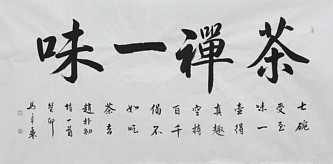 茶禪一味
七碗
受至
味一
壺得
真趣
空持
百千
偈不
如吃
茶去
趙朴初
詩一首
癸卯